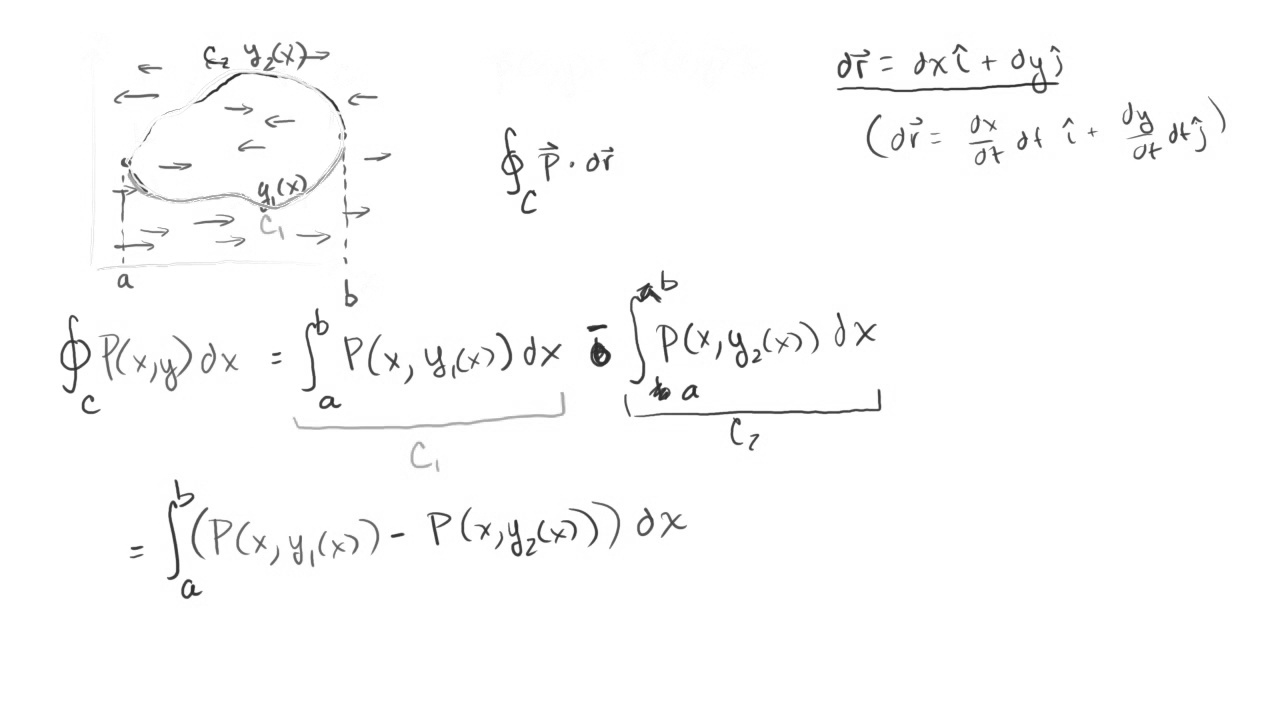 C₂ y₂(x)
y₁(x)
C₁
a b
∮_C P⃗ · dr⃗
dr⃗ = dx î + dy ĵ
(dr⃗ = dx/dt dt î + dy/dt dt ĵ)
∮_C P(x,y) dx = ∫_a^b P(x, y₁(x)) dx - ∫_a^b P(x, y₂(x)) dx
C₁ C₂
= ∫_a^b (P(x, y₁(x)) - P(x, y₂(x))) dx